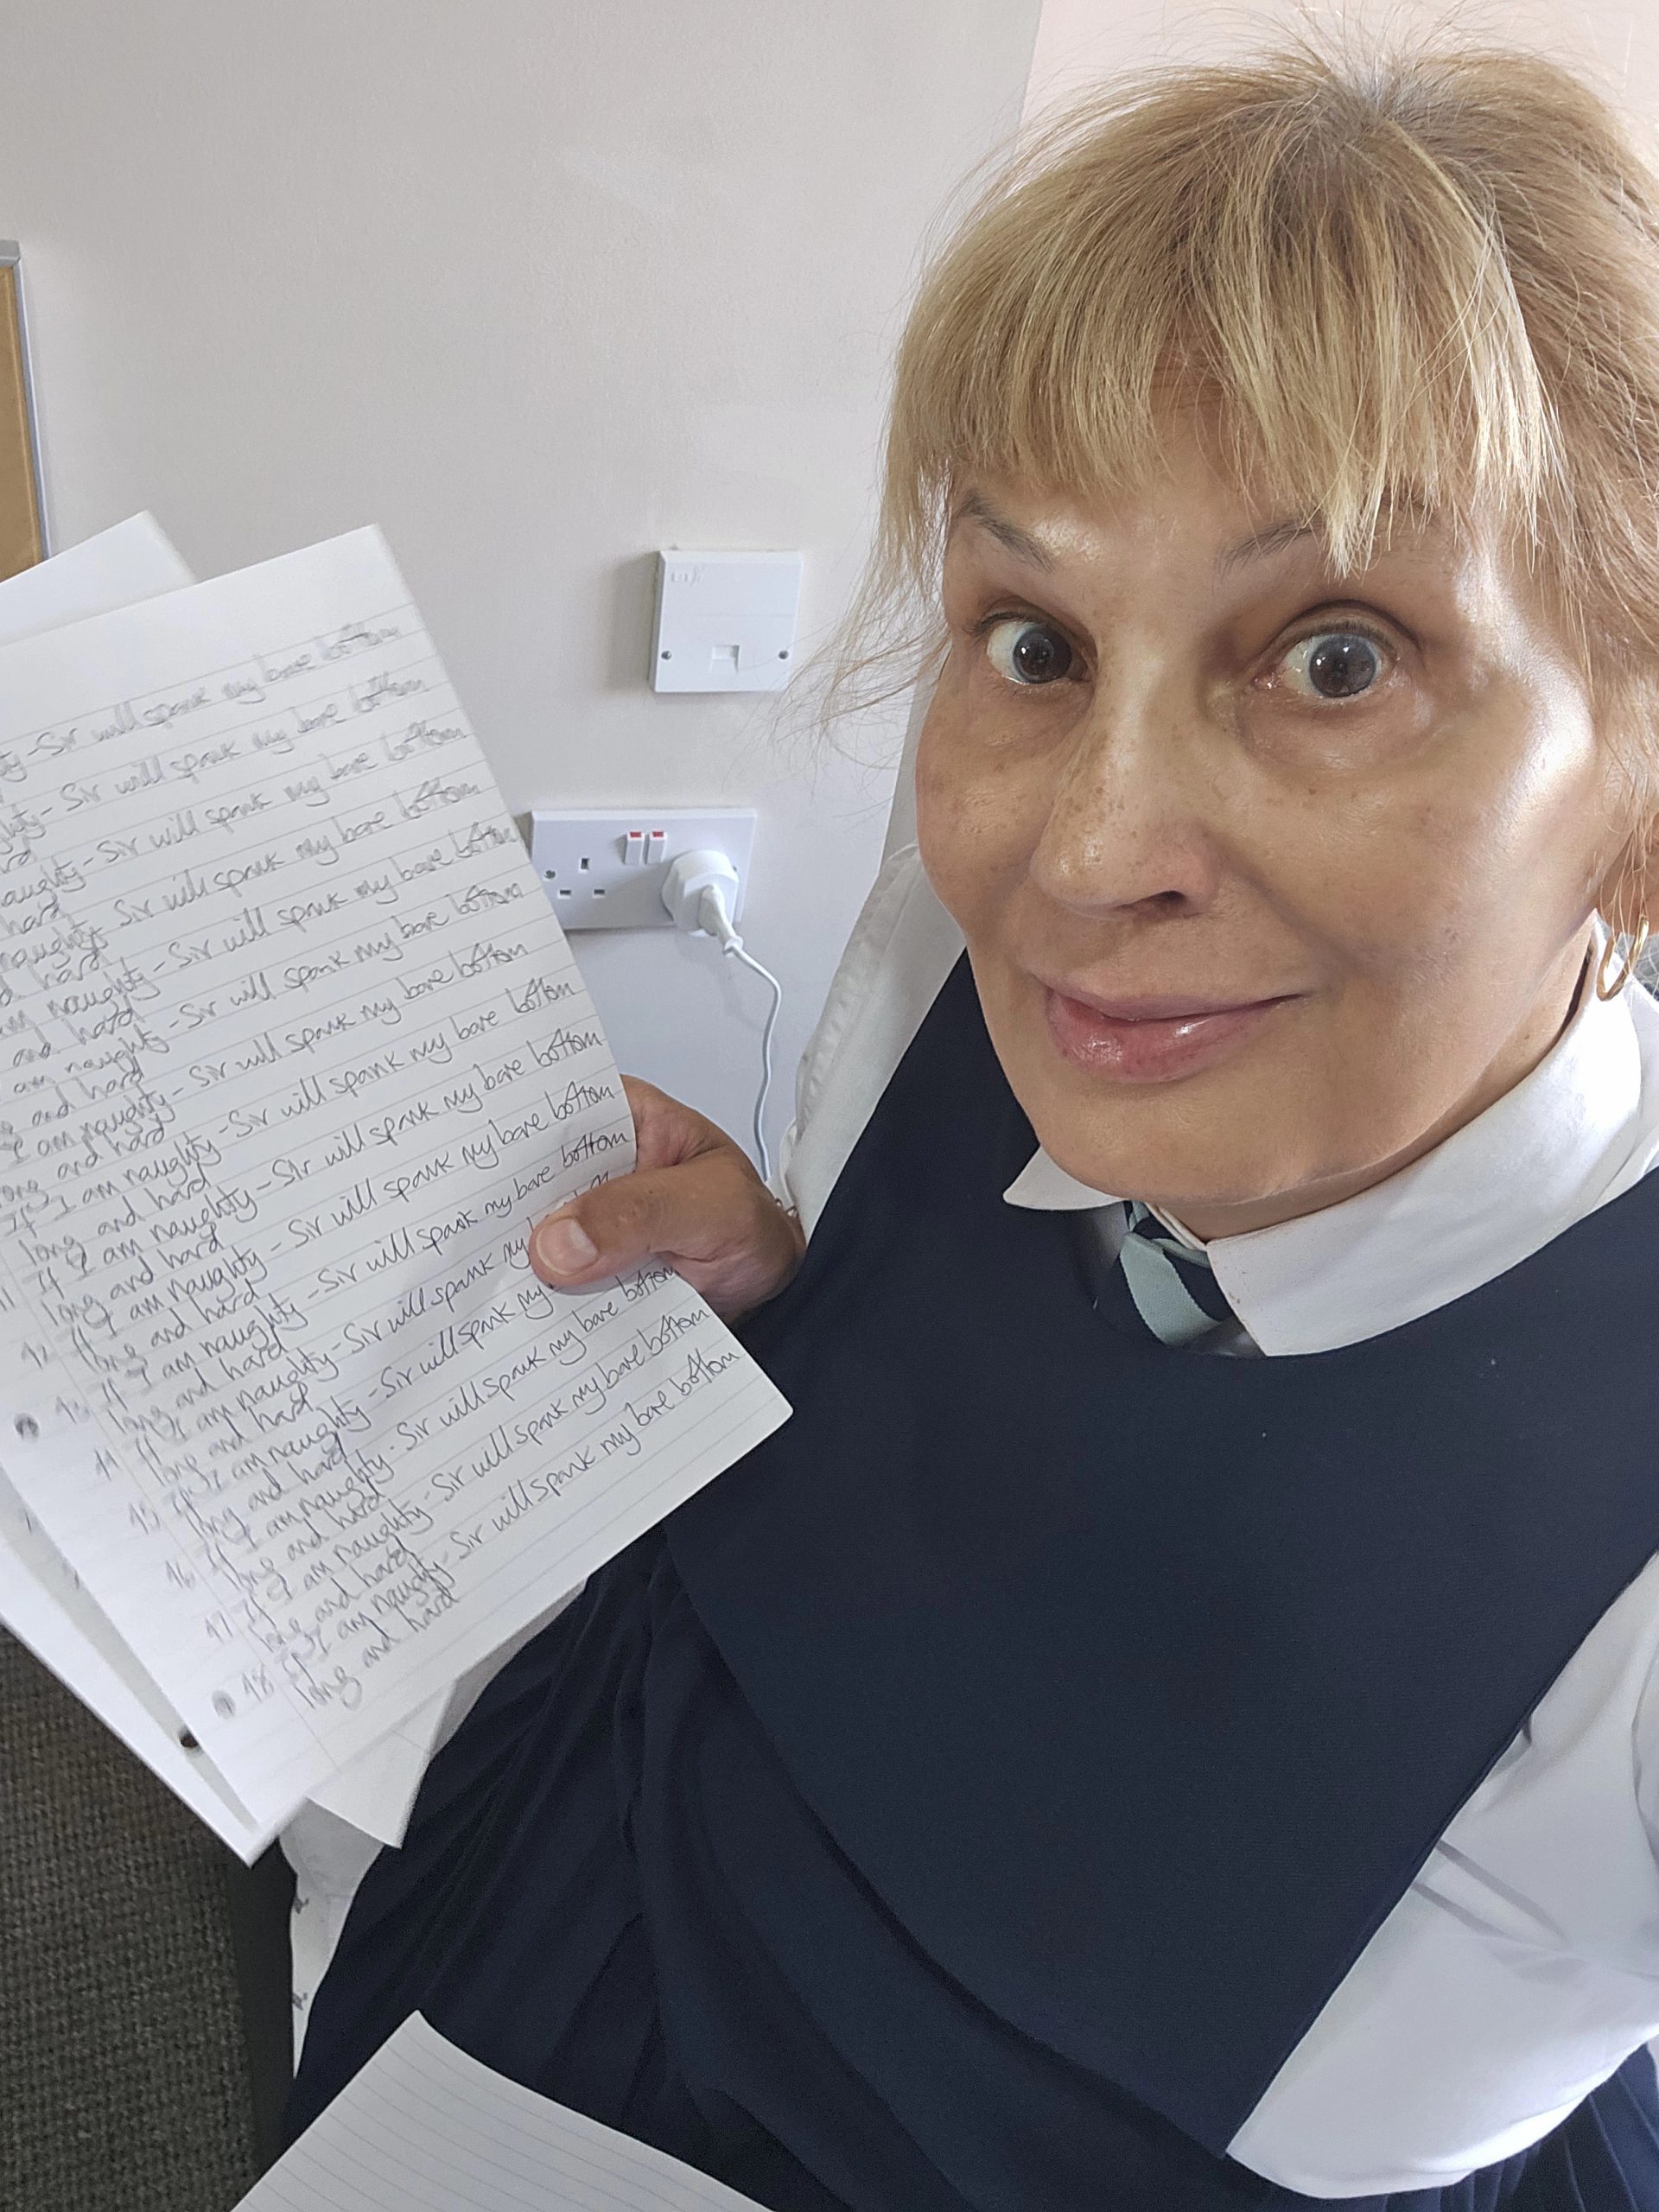 Sir will spank my bare bottom
Sir will spank my bare bottom
naughty - Sir will spank my bare bottom
hard
naughty Sir will spank my bare bottom
hard
am naughty - Sir will spank my bare bottom
and hard
am naughty - Sir will spank my bare bottom
and hard
I am naughty - Sir will spank my bare bottom
long and hard
If I am naughty - Sir will spank my bare bottom
long and hard
11 If I am naughty - Sir will spank my bare bottom
long and hard
12 If I am naughty - Sir will spank my bare bottom
long and hard
13 If I am naughty - Sir will spank my bare bottom
long and hard
14 If I am naughty - Sir will spank my
long and hard
15 If I am naughty - Sir will spank my
long and hard
16 If I am naughty - Sir will spank my bare bottom
long and hard
17 If I am naughty - Sir will spank my bare bottom
long and hard
18 If I am naughty - Sir will spank my bare bottom
long and hard